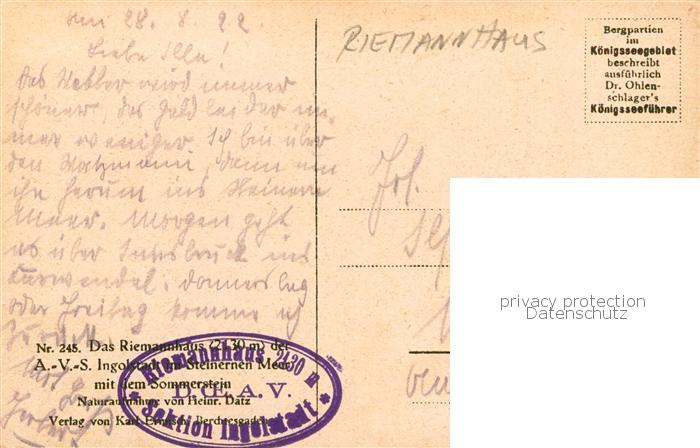 am 28. 8. 22.
Liebe Illa!
Das Wetter wird immer
schöner, das Geld leider im-
mer weniger. Ich bin über
den Watzmann, dann um
ihn herum ins Steinerne
Meer. Morgen geht
es über Innsbruck ins
Karwendel. Donnerstag
oder Freitag komme ich
zurück.
Nr. 245. Das Riemannhaus (2130 m) der
A.-V.-S. Ingolstadt im Steinernen Meer
mit dem Sommerstein
Naturaufnahme von Heinr. Datz
Verlag von Karl Ermisch, Berchtesgaden
Riemannhaus 2130 m
D. Œ. A. V.
Sektion Ingolstadt
RIEMANNHAUS
Bergpartien
im
Königsseegebiet
beschreibt
ausführlich
Dr. Ohlen-
schlager's
Königsseeführer
Frl.
privacy protection
Datenschutz